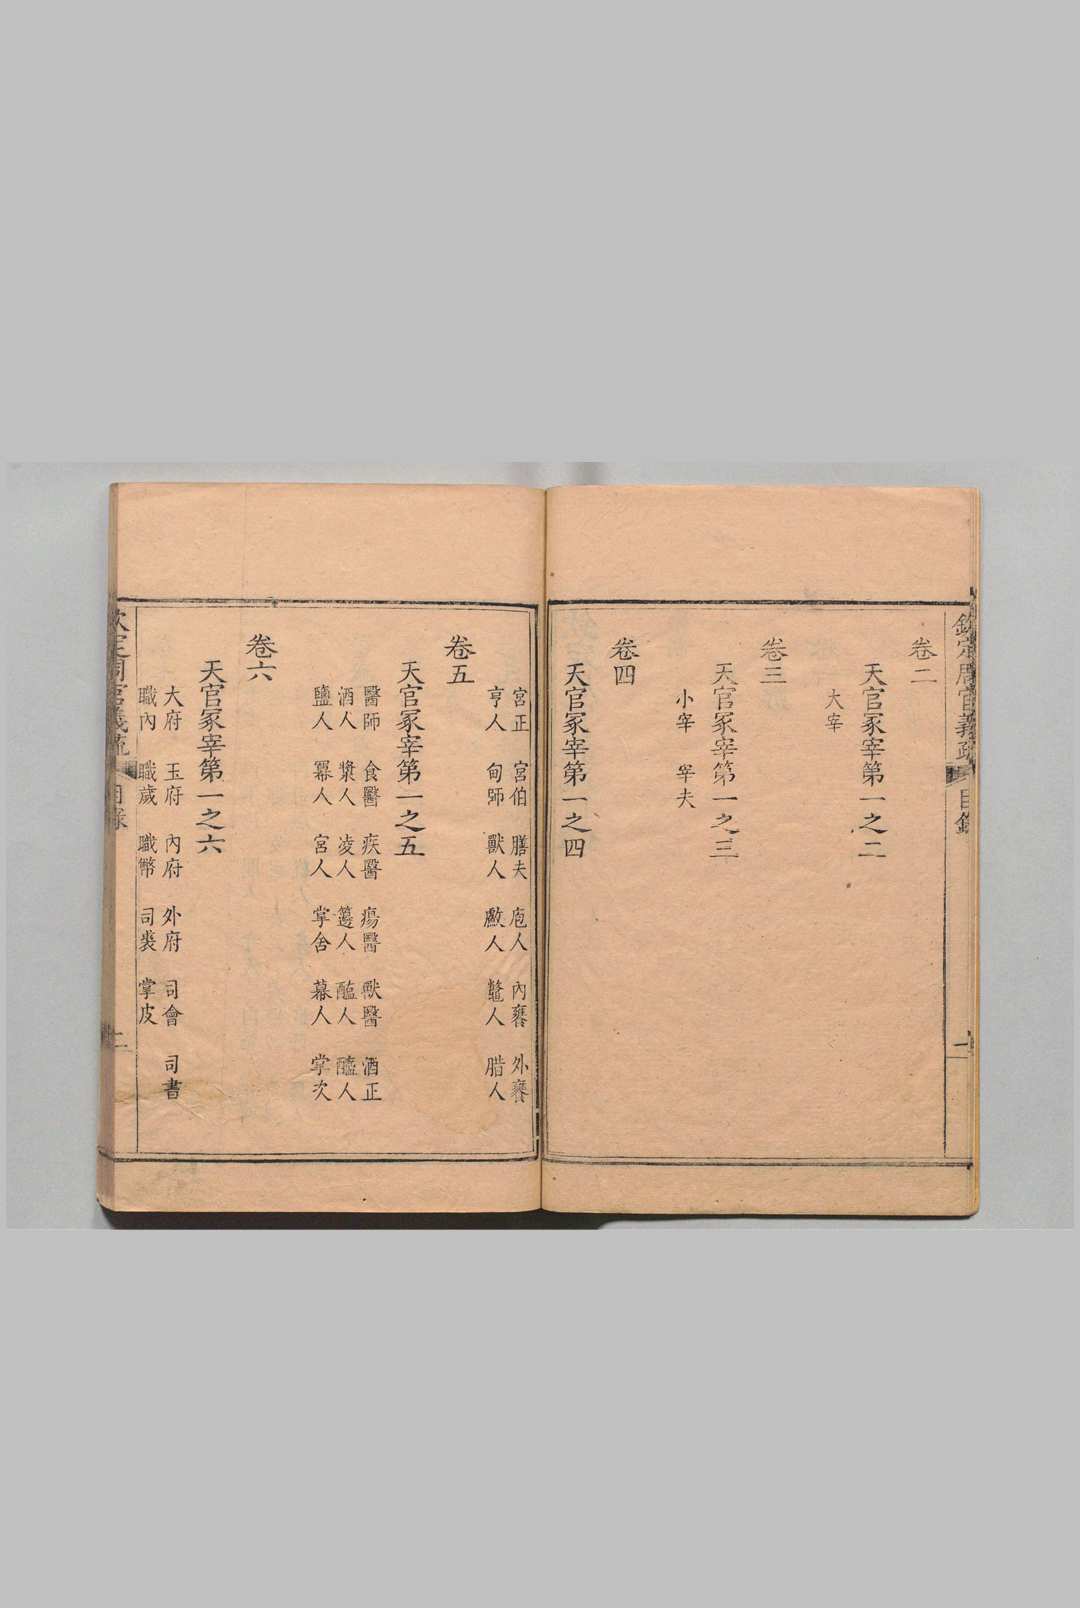 欽定周官義疏 目錄 二
卷二
天官冢宰第一之二
大宰
卷三
天官冢宰第一之三
小宰 宰夫
卷四
天官冢宰第一之四
宮正 宮伯 膳夫 庖人 內饔 外饔
亨人 甸師 獸人 䱷人 鼈人 腊人
卷五
天官冢宰第一之五
醫師 食醫 疾醫 瘍醫 獸醫 酒正
酒人 漿人 凌人 籩人 醢人 醯人
鹽人 冪人 宮人 掌舍 幕人 掌次
卷六
天官冢宰第一之六
大府 玉府 內府 外府 司會 司書
職內 職歲 職幣 司裘 掌皮
欽定周官義疏 目錄 二